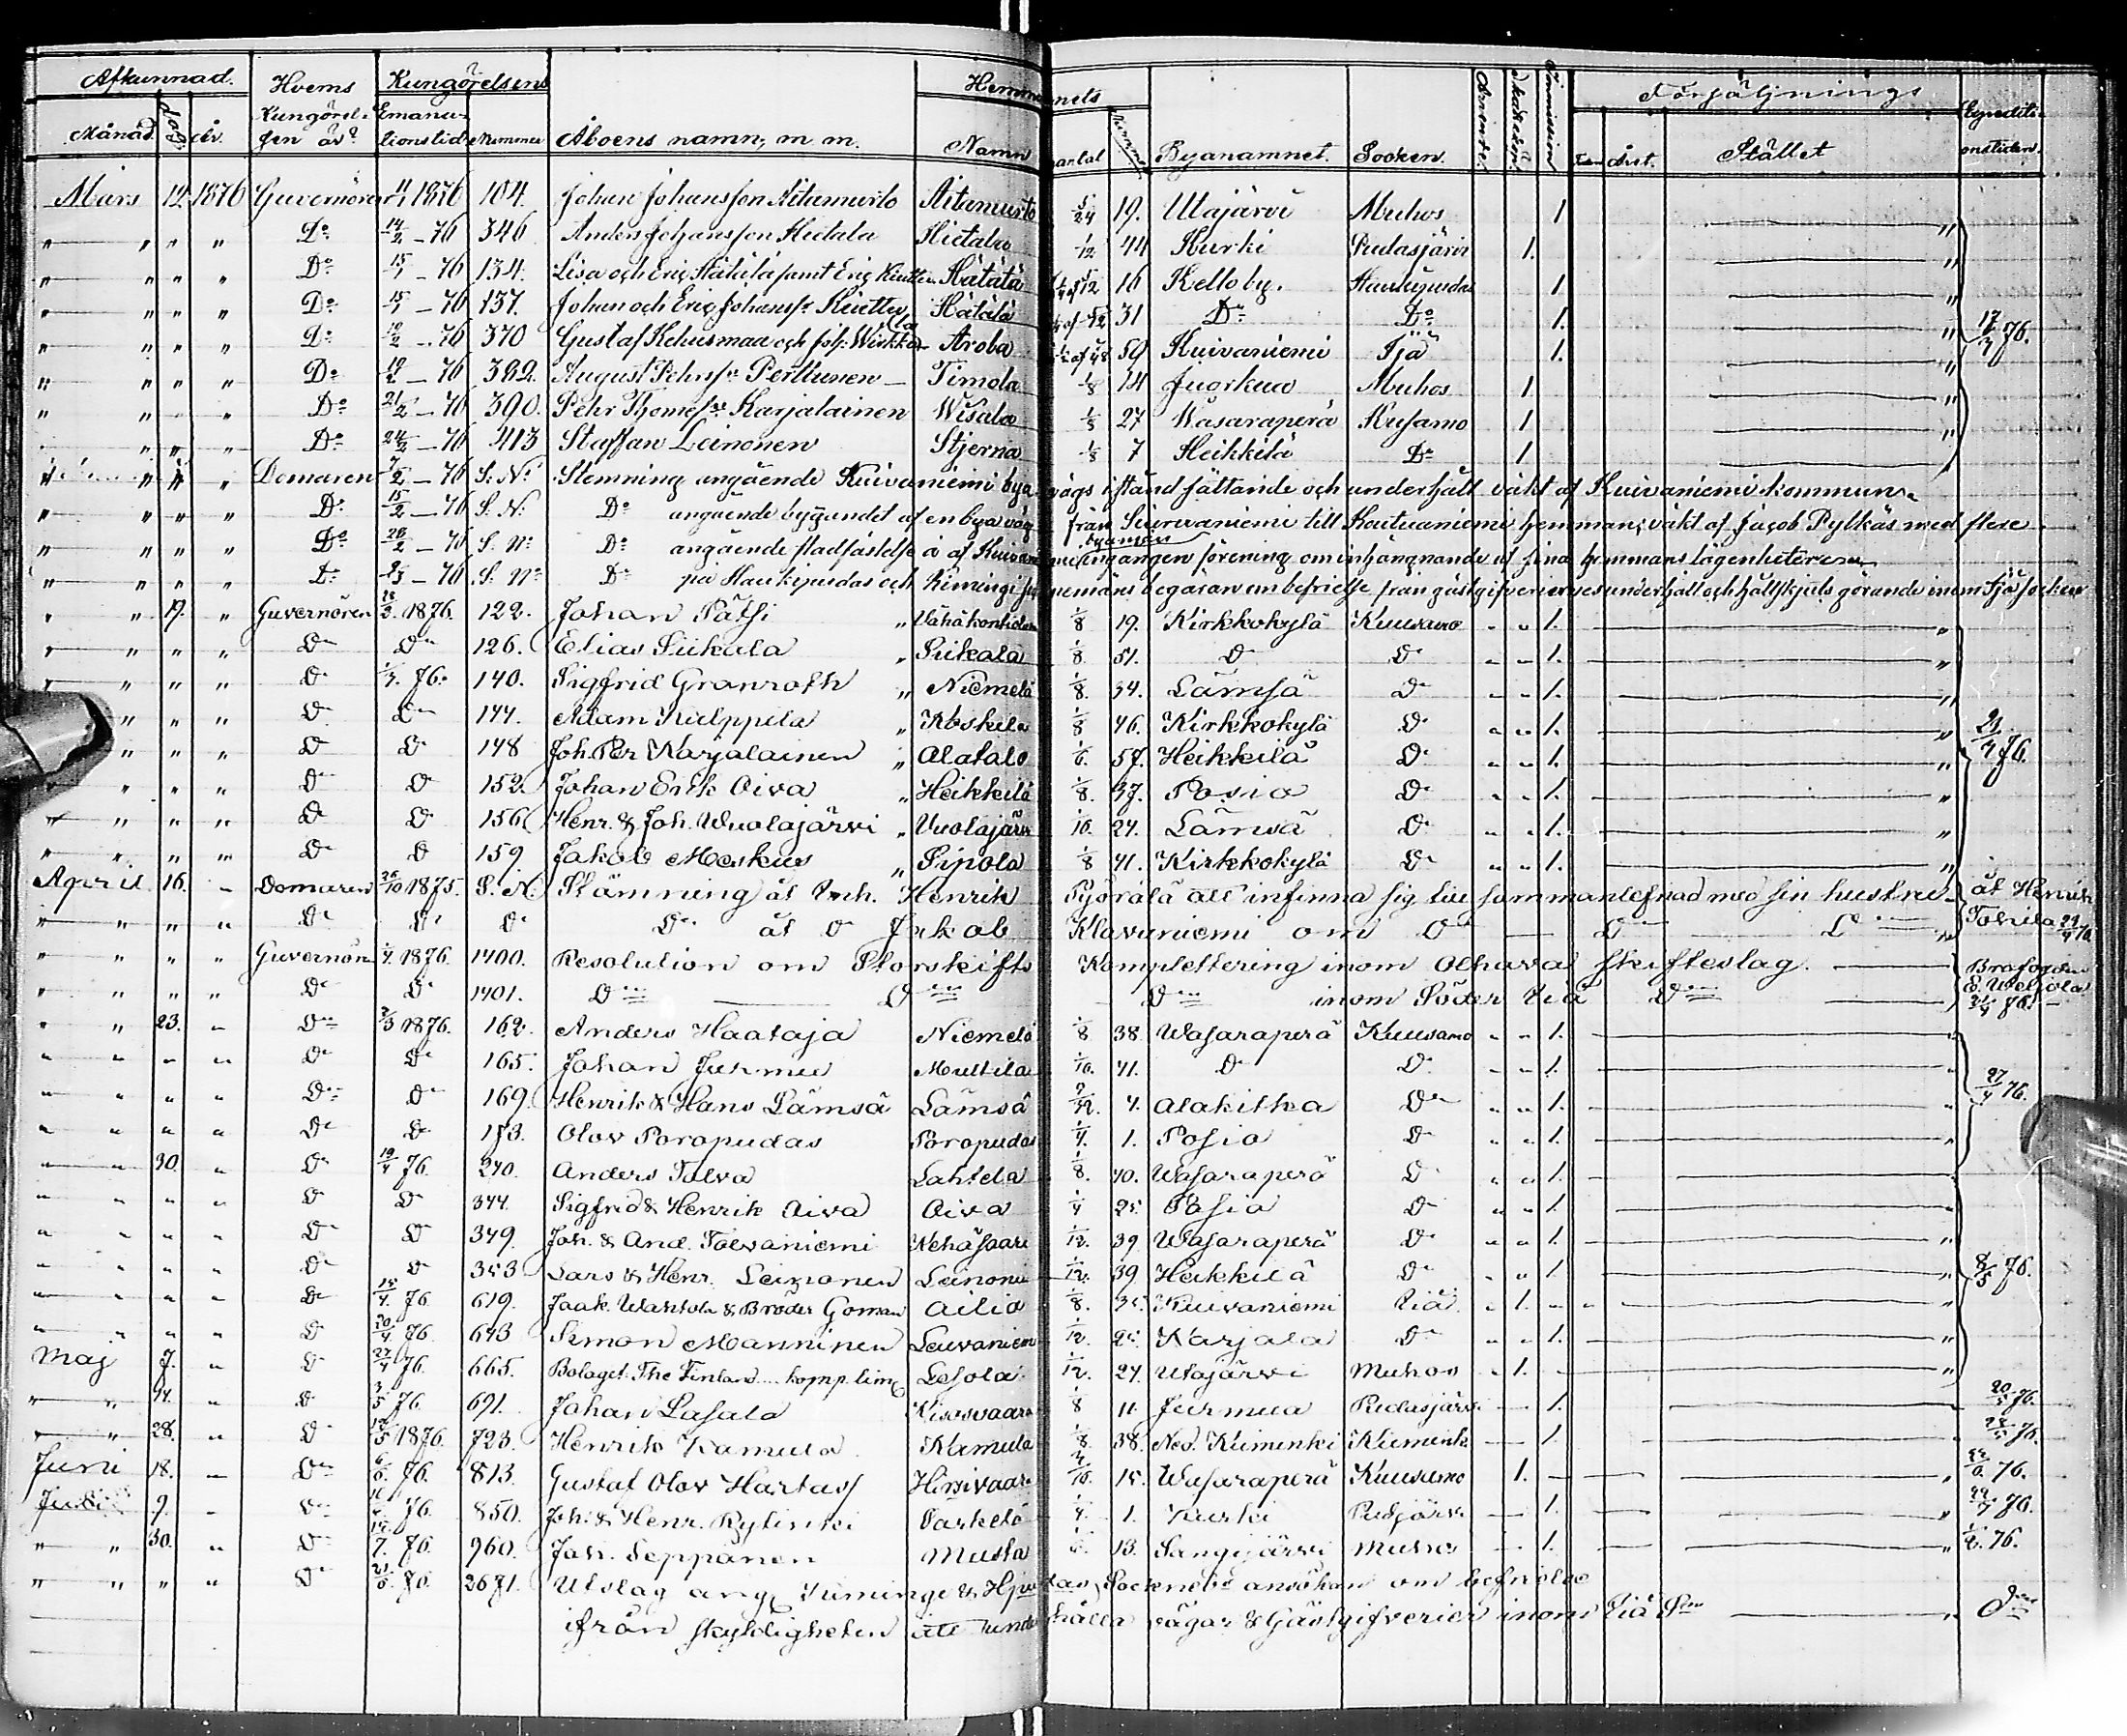 Afkunnad. Hvems Kungörelsens Hemmanets Försäljnings Expediti-
Månad. dag. år. Kungörel- Emana- Nummer Åboens namn, m. m. Namn mantal Nummer Byanamnet. Socken. Immission året. Stället onstiden.
sen är? tionstid
Mars 12. 1876 Guvernören 11/1 1876 104. Johan Johansson Aitamurto Aitamurto 5/24 19. Utajärvi Muhos 1 "
" " " " Do 14/2 - 76 346 Anders Johansson Hietala Hietala 1/12 44 Kurki Pudasjärvi 1. "
" " " " Do 15/1 - 76 134. Lisa och Eric Hätälä samt Eric Kiuttu Hätälä 16 Kelloby. Haukipudas 1 "
" " " " Do 15/1 - 76 137. Johan och Eric Johanss. Kiuttu Hätälä 31 Do Do 1. " 17/3 76.
" " " " Do 19/2 - 76 370 Gustaf Kehusmaa och Joh. Aroba 59 Kuivaniemi Ijå 1. "
" " " " Do 19/2 - 76 382. August Pehrss. Perttunen Timola 1/8 14 Juorkua Muhos 1 "
" " " Do 21/2 - 76 390. Pehr Thomess. Karjalainen Wisala 1/8 27 Wasaraperä Kusamo 1 "
" " " " Do 24/2 - 76 413 Staffan Leinonen Stjerna 1/8 7 Heikkilä Do 1 "
" " " " Domaren 7/2 - 76 S. No Stemning angående Kuivaniemi bya vägs iståndsättande och underhåll väkt af Kuivaniemi kommun.
" " " " Do 15/2 - 76 S. No Do angående byggandet af en bya väg från Siurvaniemi till Hemman, väkt af Jacob Pylkäs med flere
" " " " Do 28/2 - 76 S. No Do angående stadfästelse å af Kuivaniemi byamän ingången förening om inhängnande af sina hemmans lägenheter
" " " " Do 2/3 - 76 S. No Do på Haukipudas och Kimingi begäran om befrielse från gästgifveriernes underhåll och hållskjuts görande inom Ijå socken
" " 19. " Guvernören 28/2. 1876. 122. Johan Pätsi " Vähäkontiola 1/8 19. Kirkkokylä Kuusamo " " 1. "
" " " " Do Do 126. Elias Siikala " Siikala 1/8 51. Do Do " " 1. "
" " " " Do 1/3. 76. 140. Sigfrid Granroth " Niemelä 1/8. 34. Lämsä Do " " 1. "
" " " Do Do 144. Adam Kulppila " Koskela 1/8 46. Kirkkokylä Do " " 1. " 21/4 76.
" " " Do Do 148 Joh. Per Karjalainen " Alatalo 1/6. 57. Heikkilä Do " " 1. "
" " " Do Do 152. Johan Erik Oiva " Heikkilä 1/8. 37. Posio Do " " 1. "
" " " " Do Do 156. Henr. & Joh. Wuolajärvi " Vuolajärvi 1/16. 24. Lämsä Do " " 1. "
" " " " Do Do 159. Jakob Meskus " Sipola 1/8 41. Kirkkokylä Do " " 1. "
April 16. " Domaren 26/10 1875. S. N. Stämning åt Inh. Henrik Pyörälä att infinna sig till sammanlefnad med sin hustru. åt Henrik
" " " " Do Do Do Do åt Do Jakob Klavuniemi om Do Do Do " Tolvila 24/4 76
" " " " Guvernören 1/4. 1876. 1400. Resolution om Storskifts Komplettering inom Olhava skifteslag.
" " " " Do Do 1401. Do Do Do inom Söder Iiå Do E. Weijola 21/4 76.
" " 23. " Do 2/3 1876. 162. Anders Haataja Niemelä 1/8 38 Wasaraperä Kuusamo " " 1. "
" " " " Do Do 165. Johan Jurmu Multila 1/16. 41. Do Do " " 1. " 27/4 76.
" " " " Do Do 169. Henrik & Hans Lämsä Lämsä 4. Alakitka Do " " 1. "
" " " " Do Do 173. Olov Poropudas Poropudas 1/4. 1. Posio Do " " 1. "
" " 30. " Do 19/4 76. 240. Anders Talva Lahtela 1/8. 40. Wasaraperä Do " " 1. "
" " " " Do Do 344. Sigfrid & Henrik Aiva Aiva 1/4 25. Posio Do " " 1. "
" " " " Do Do 349. Joh. & And. Tolvaniemi Kehäsaari 1/12. 39 Wasaraperä Do " " 1. "
" " " " Do Do 353 Lars & Henr. Leinonen Leinonen 1/12. 39. Heikkilä Do " " 1. " 8/5 76.
" " " " Do 15/4. 76. 619. Jaak. Wahtola & Bröder Goman Ailio 1/8. 35. Kuivaniemi Iiå " 1. "
" " " " Do 20/4. 76. 643 Simon Manninen Leuvaniemi 1/12. 25. Karjala Do " " 1. "
Maj 7. " Do 27/4 76. 665. Bolaget The Finland komp. lim. Lesola 1/12. 27. Utajärvi Muhos " 1. "
" " 14. " Do 3/5 76. 691. Johan Lasala Kisosvaara 1/8 11. Jurmua Pudasjärvi 1. 20/5 76.
" " 28. " Do 19/5 1876. 723. Henrik Kamula Kamula 1/8. 38. Ned. Kiiminki Kiiminki 1. 76.
Juni 18. " Do 6/6. 76. 813. Gustaf Olov Hartas Hirsivaara 15. Wasaraperä Kuusamo 1. " 22/6 76.
Juli 9. " Do 76. 850. Joh. & Henr. Rytinki Parkela 1/4. 1. Kurki Pudjärvi 1. " 76.
" " 30. " Do 7. 76. 960. Joh. Seppänen Musta 13. Sangijärvi Muhos 1. " 76.
" " " " Do 76. 2671. Utslag ang. Kiminge & Hpudas Sockneds ansökan om befrielse
ifrån skyldigheten att underhålla vägar & Gästgifverier inom Iiå Sn " Do